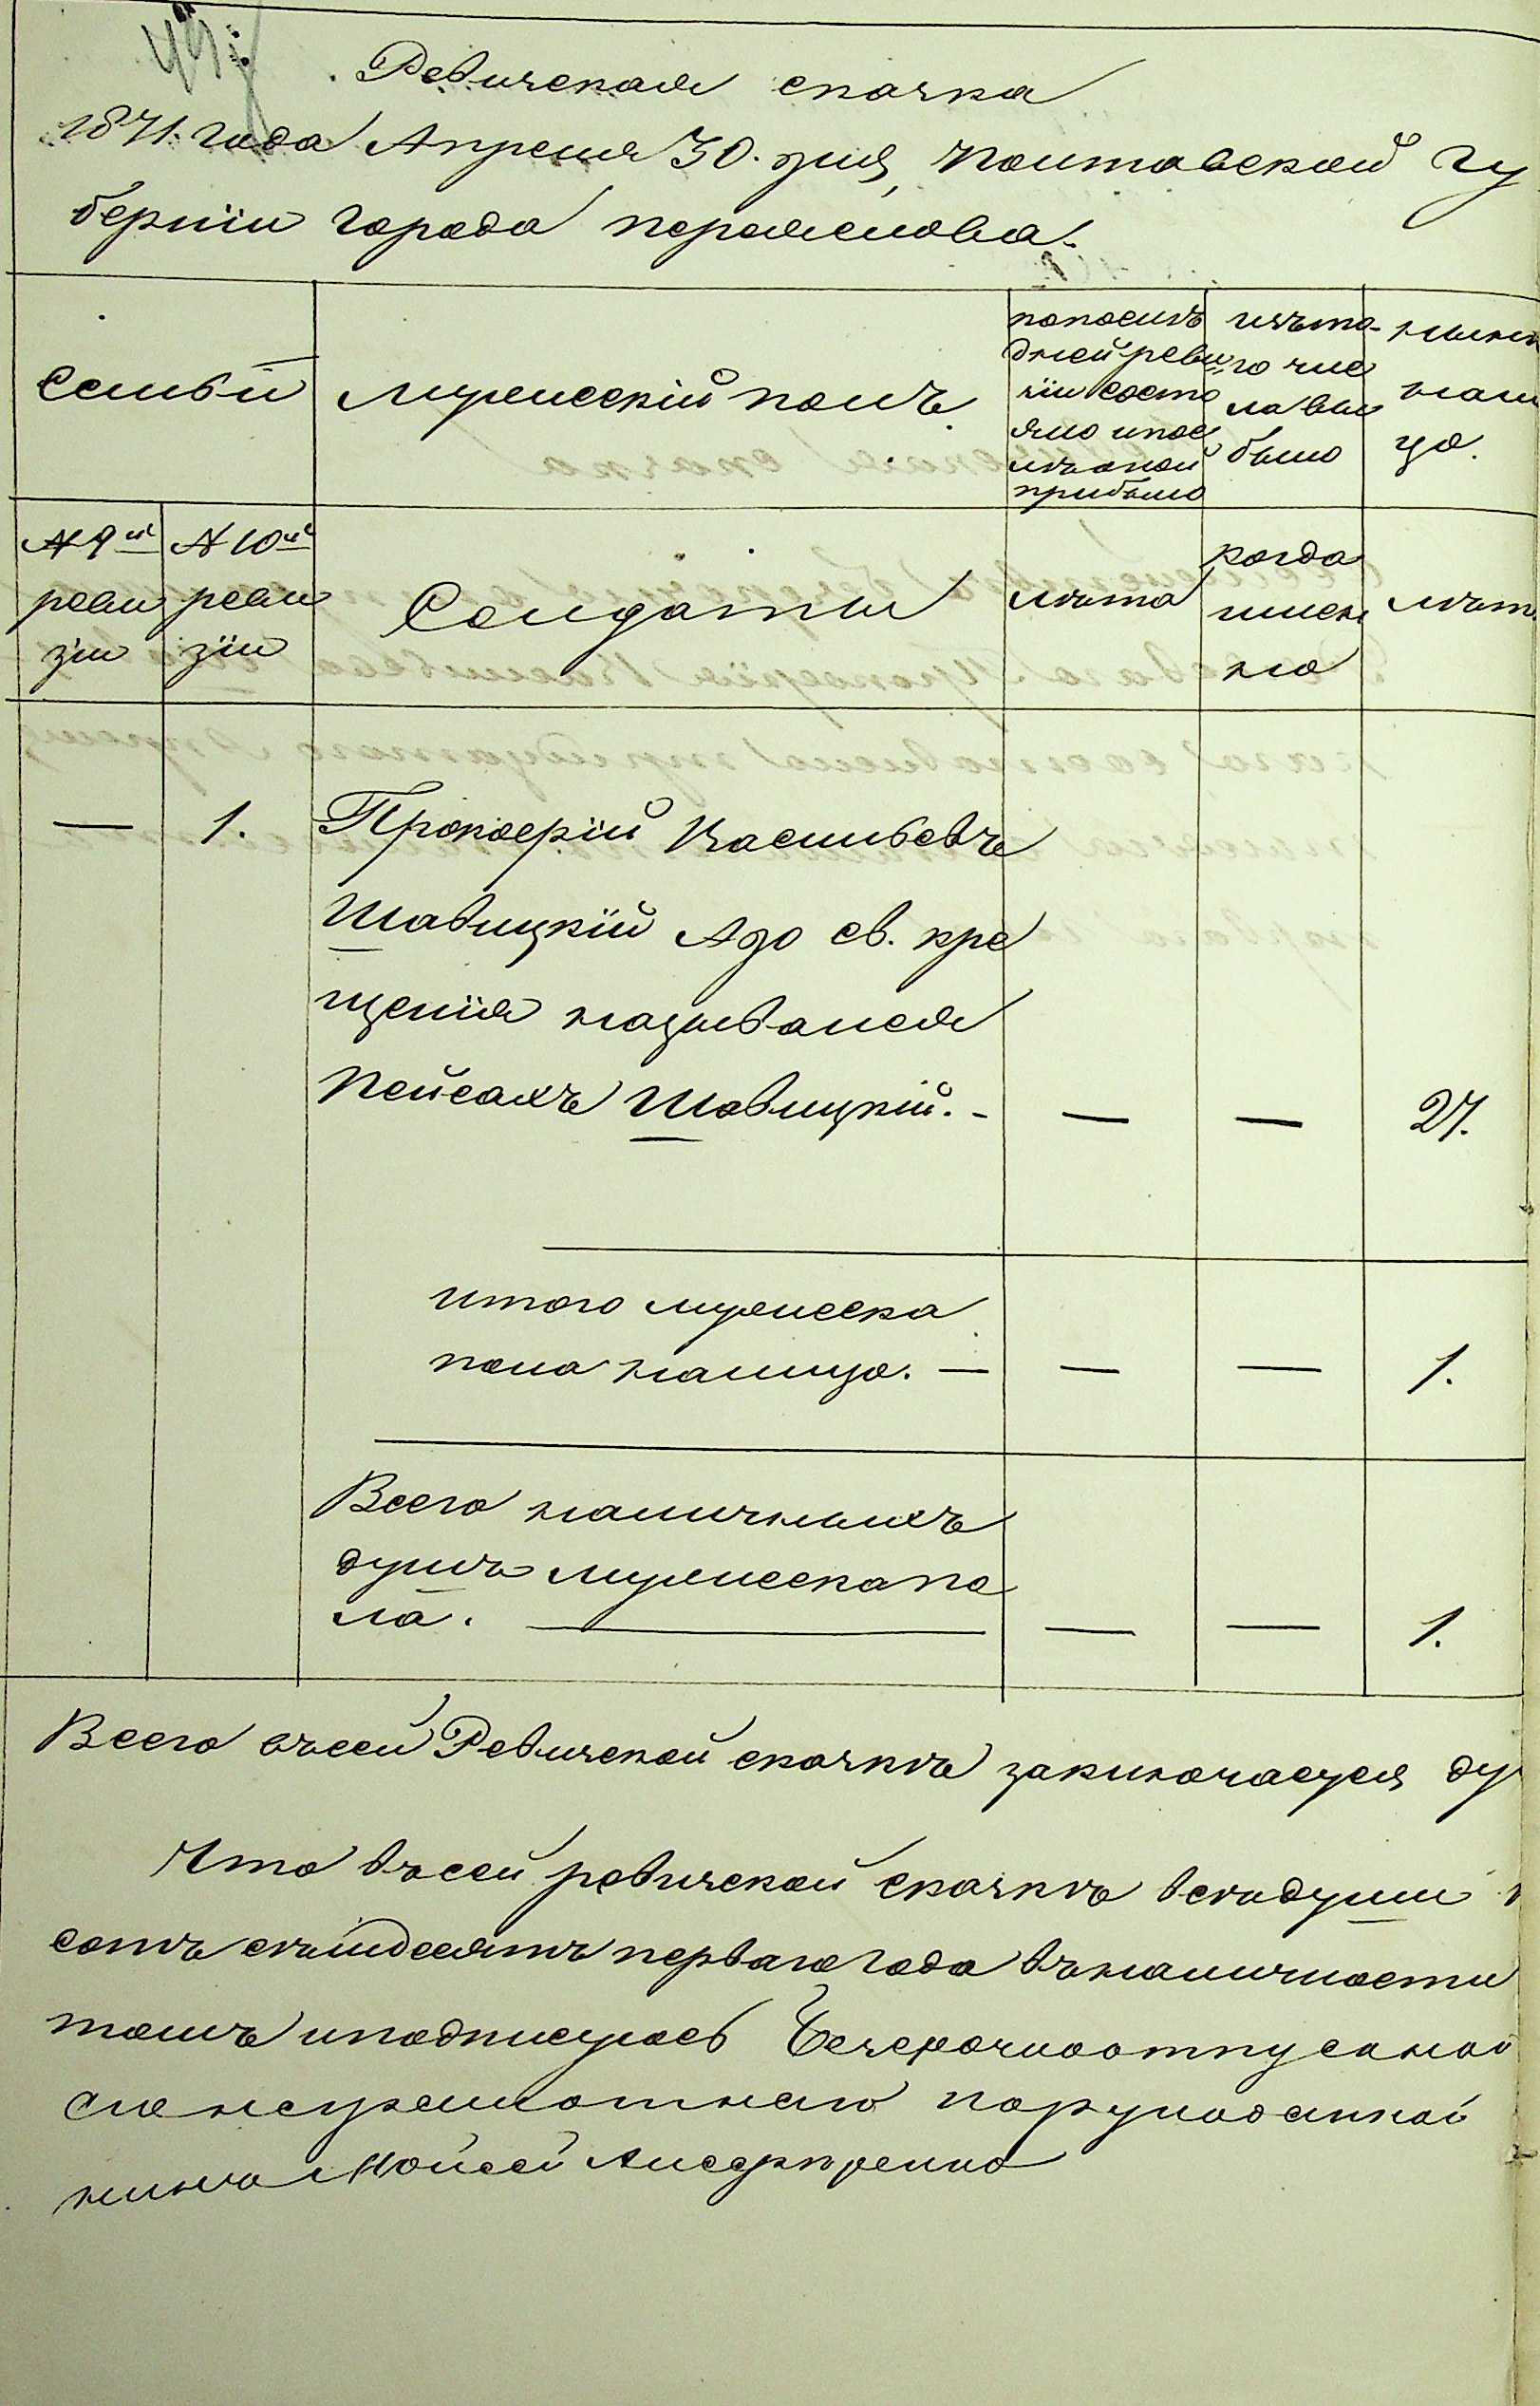 Ревизская сказка
1871. года Апреля 30. дня, Полтавской Гу
берніи города переяслова.
Семьи
мужескій полъ.
попослѣ
дней реви
зіи состо
яло ипос
лѣ оной
прибыло
изъто
го чис
ла вы
было
нынѣ
нали
цо.
№ 9й
реви
зіи
№ 10й
реви
зіи
Солдаты
лѣта
когда
имен
но
лѣт
—
1.
Прокофій Васильевъ
Шавицкій Адо св. кре
щенія назывался
Пейсахъ Шавицкій. -
—
—
27.
итого мужеска
пола налицо. —
—
—
1.
Всего наличныхъ
душъ мужеска по
ла.
—
—
1.
Всего въсей Ревизской сказкѣ заключается ду
Что въсей ревизской сказкѣ всѣ души
сотъ семдесятъ перваго года въналичности
томъ иподписуюсь Безсрочноотпускной
неграмотнаго
Мойсей